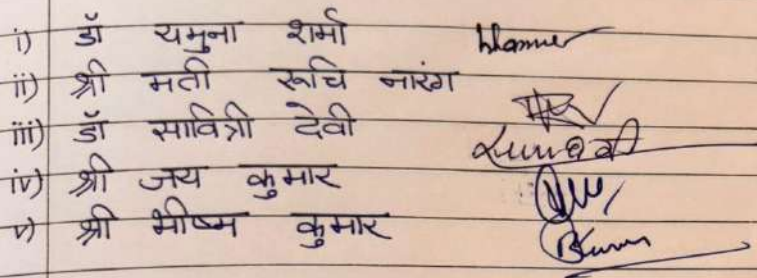 i) डॉ यमुना शर्मा
ii) श्री मती रूचि नारंग
iii) डॉ सावित्री देवी
iv) श्री जय कुमार
v) श्री भीष्म कुमार